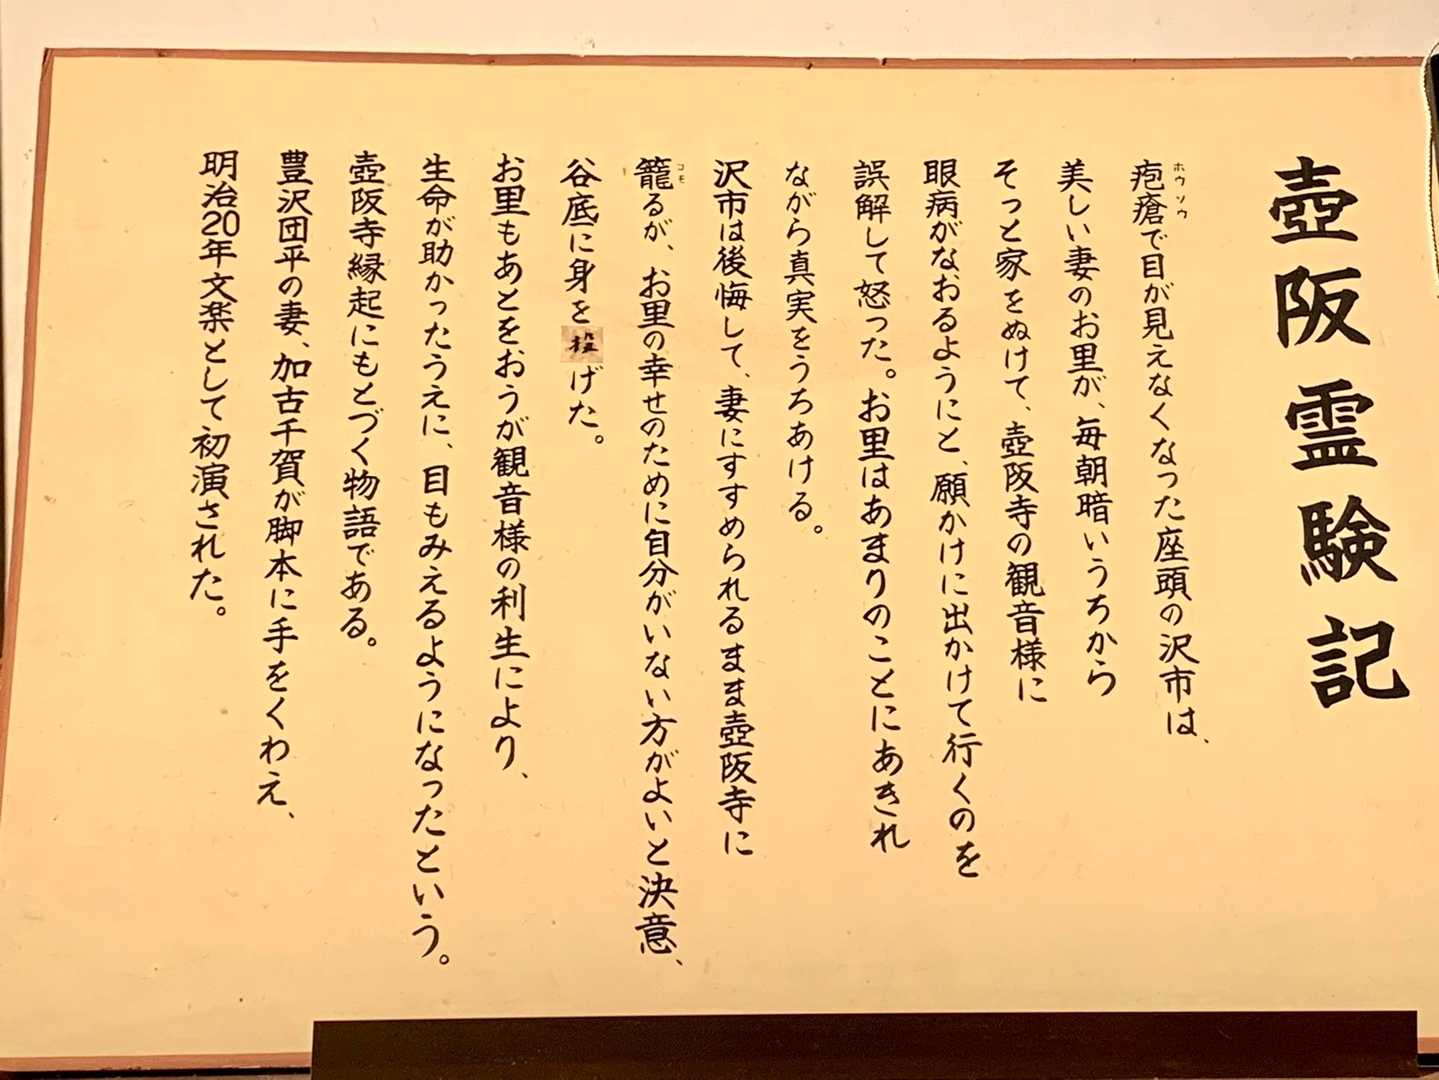 壺阪霊験記
疱瘡で目が見えなくなった座頭の沢市は、
ホウソウ
美しい妻のお里が、毎朝暗いうちから
そっと家をぬけて、壺阪寺の観音様に
眼病がなおるようにと、願かけに出かけて行くのを
誤解して怒った。お里はあまりのことにあきれ
ながら真実をうちあける。
沢市は後悔して、妻にすすめられるまま壺阪寺に
籠るが、お里の幸せのために自分がいない方がよいと決意、
コモ
谷底に身を投げた。
お里もあとをおうが観音様の利生により、
生命が助かったうえに、目もみえるようになったという。
壺阪寺縁起にもとづく物語である。
豊沢団平の妻、加古千賀が脚本に手をくわえ、
明治20年文楽として初演された。